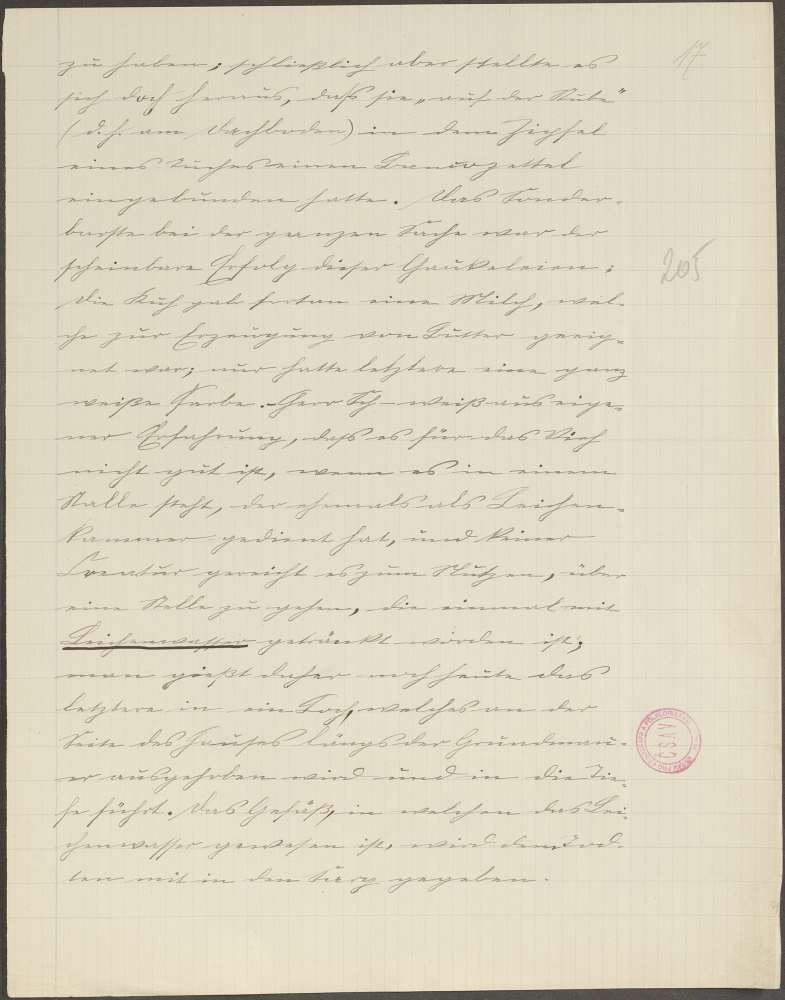 17
zu haben; schließlich aber stellte es
sich doch heraus, daß sie „auf der Stube"
(d. h. am Dachboden) in dem Zipfel
eines Tuches einen
eingebunden hatte. Das Sonder-
barste bei der ganzen Sache war der
scheinbare Erfolg dieser Gaukeleien:
die Kuh gab fortan eine Milch, wel-
che zur Erzeugung von Butter geeig-
net war; nur hatte letztere eine ganz
weiße Farbe. – Herr Sch– weiß aus eige-
ner Erfahrung, daß es für das Vieh
nicht gut ist, wenn es in einem
Stalle steht, der ehemals als Leichen-
kammer gedient hat, und keiner
Creatur gereicht es zum Nutzen, über
eine Stelle zu gehen, die einmal mit
Leichenwasser getränkt worden ist;
man gießt daher noch heute das
letztere in ein Loch, welches an der
Seite des Hauses längs der Grundmau-
er ausgehoben wird und in die Tie-
fe führt. Das Gefäß, in welchem das Lei-
chenwasser gewesen ist, wird dem Tod-
ten mit in den Sarg gegeben.
205
ČSAV